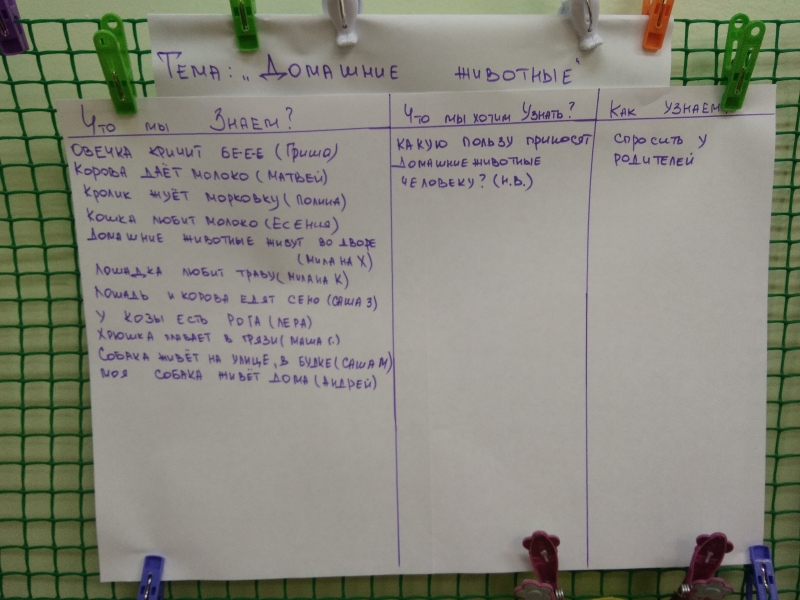 Тема: „Домашние животные"
Что мы Знаем?
Овечка кричит бе-е-е (Гриша)
Корова даёт молоко (Матвей)
Кролик жуёт морковку (Полина)
Кошка любит молоко (Есения)
Домашние животные живут во дворе
(Милана Х)
Лошадка любит траву (Милана К)
Лошадь и корова едят сено (Саша З)
У козы есть рога (Лера)
Хрюшка плавает в грязи (Маша С.)
Собака живёт на улице, в будке (Саша М)
Моя собака живёт дома (Андрей)
Что мы хотим Узнать?
Какую пользу приносят
домашние животные
человеку? (Н.В.)
Как узнаем
Спросить у
родителей